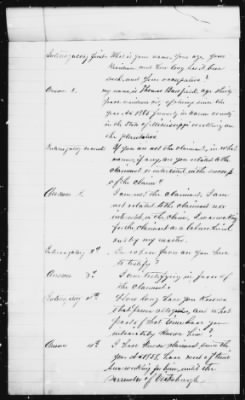 Interrogatory first: What is your name, your age, your
Residence and how long has it been
such, and your occupation?
Answer 1. my name is Thomas age thirty
four
year 1865 in county
in the State of Mississippi working on
the plantation
Interrogatory second: If you are not the claimant, in what
manner, if any, are you related to the
claimant or interested in the success
of the claim?
Answer 2. I am not the claimant, I am
not related to the claimant nor
interested in the claim,
for the claimant
by my master.
Interrogatory 3rd. In whose favor are you here
to testify?
Answer 3rd. I am testifying in favor of
the claimant.
Interrogatory 4th. How long have you known
that person altogether, and what
part of that time have you
intimately known him?
Answer 4th. I have known claimant since the
year of 1858, have most of time
him, until the
surrender of Vicksburgh.